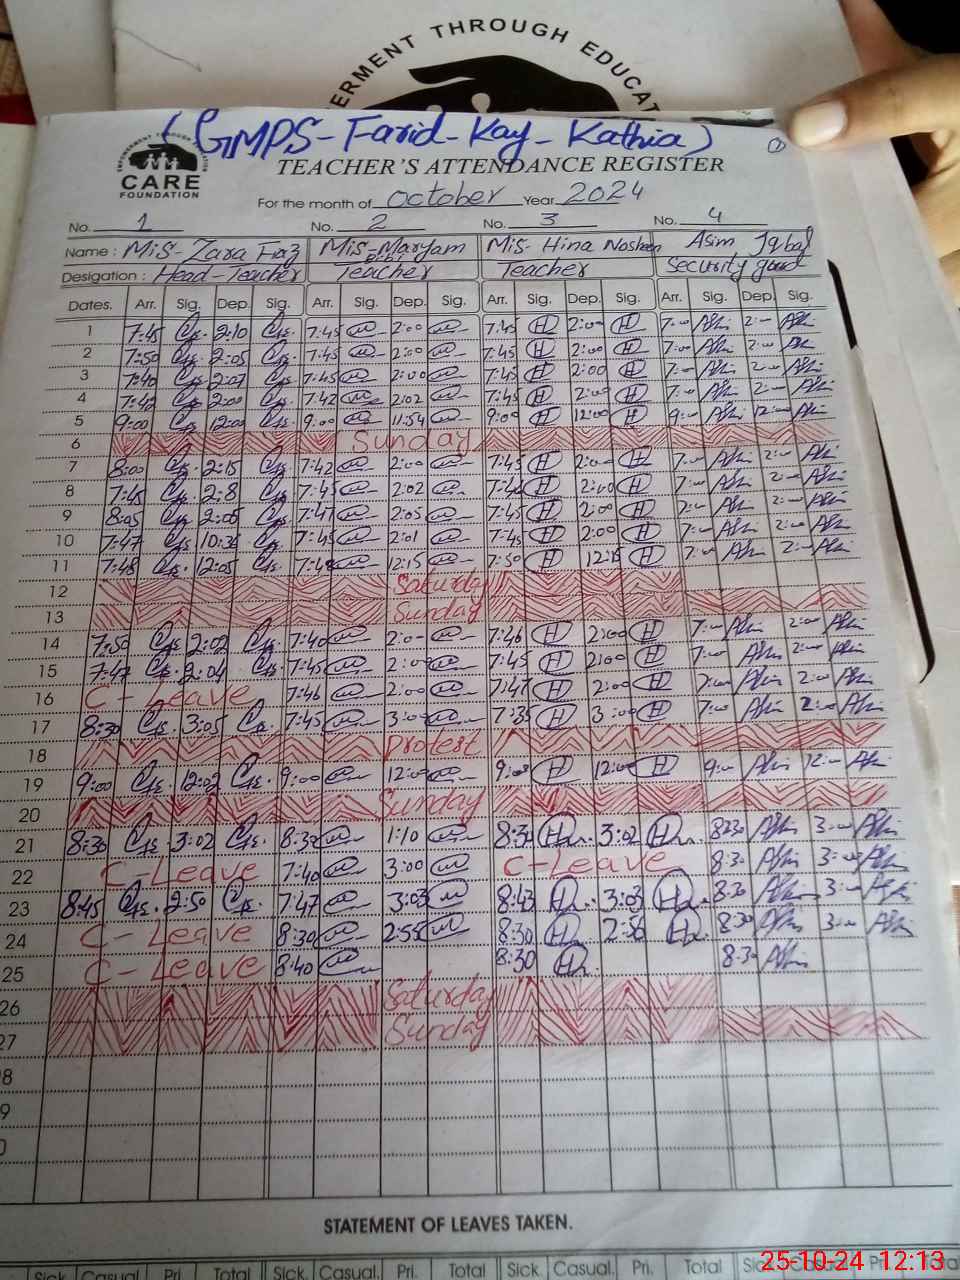 ERMENT THROUGH EDUCAT
(GMPS-Farid-Kay-Kathia)
1
EMPOWERMENT THROUGH EDUCATION
CARE
FOUNDATION
TEACHER'S ATTENDANCE REGISTER
For the month of October Year 2024
No. 1 No. 2 No. 3 No. 4
Name : MiS-Zara Fiaz MiS-Maryam Bibi MiS-Hina Nosheen Asim Iqbal
Designation : Head-Teacher Teacher Teacher Security guard
Dates. Arr. Sig. Dep. Sig. Arr. Sig. Dep. Sig. Arr. Sig. Dep. Sig. Arr. Sig. Dep. Sig.
1 7:45 2:10 7:45 2:00 7:45 H 2:00 H 7:00 2:00
2 7:50 2:05 7:45 2:00 7:45 H 2:00 H 7:00 2:00
3 7:40 2:07 7:45 2:00 7:45 H 2:00 H 7:00 2:00
4 7:42 2:00 7:42 2:02 7:45 H 2:00 H 7:00 2:00
5 9:00 12:00 9:00 11:54 9:00 H 12:00 H 9:00 12:00
6 Sunday
7 8:00 2:15 7:42 2:00 7:45 H 2:00 H 7:00 2:00
8 7:45 2:8 7:45 2:02 H 2:00 H 7:00 2:00
9 8:05 2:05 7:47 2:05 7:45 H 2:00 H 2:00
10 7:47 7:45 2:01 7:45 H 2:00 H 7:00 2:00
11 7:48 12:05 12:15 7:50 H 12:15 H 7:00 2:00
12 Saturday
13 Sunday
14 7:50 2:02 7:40 2:00 7:46 H 2:00 H 7:00 2:00
15 7:47 2:04 7:45 2:00 7:45 H 2:00 H 7:00 2:00
16 C-Leave 7:46 2:00 7:47 H 2:00 H 7:00 2:00
17 8:30 3:05 7:45 3:00 7:35 H 3:00 H 7:00 2:00
18 Protest
19 9:00 12:02 9:00 12:00 9:00 H 12:00 H 9:00 12:00
20 Sunday
21 8:30 3:02 8:30 1:10 8:30 H 3:02 H 8:30 3:00
22 C-Leave 7:40 3:00 C-Leave 8:30 3:00
23 8:45 2:50 7:47 3:03 8:43 H 3:03 H 8:30 3:00
24 C-Leave 8:30 2:58 8:30 H 2:56 H 8:30 3:00
25 C-Leave 8:40 8:30 H 8:30
26 Saturday
27 Sunday
8
9
0
STATEMENT OF LEAVES TAKEN.
Sick Casual. Pri. Total Sick. Casual. Pri. Total Sick. Casual. Pri. Total
25-10-24 12:13